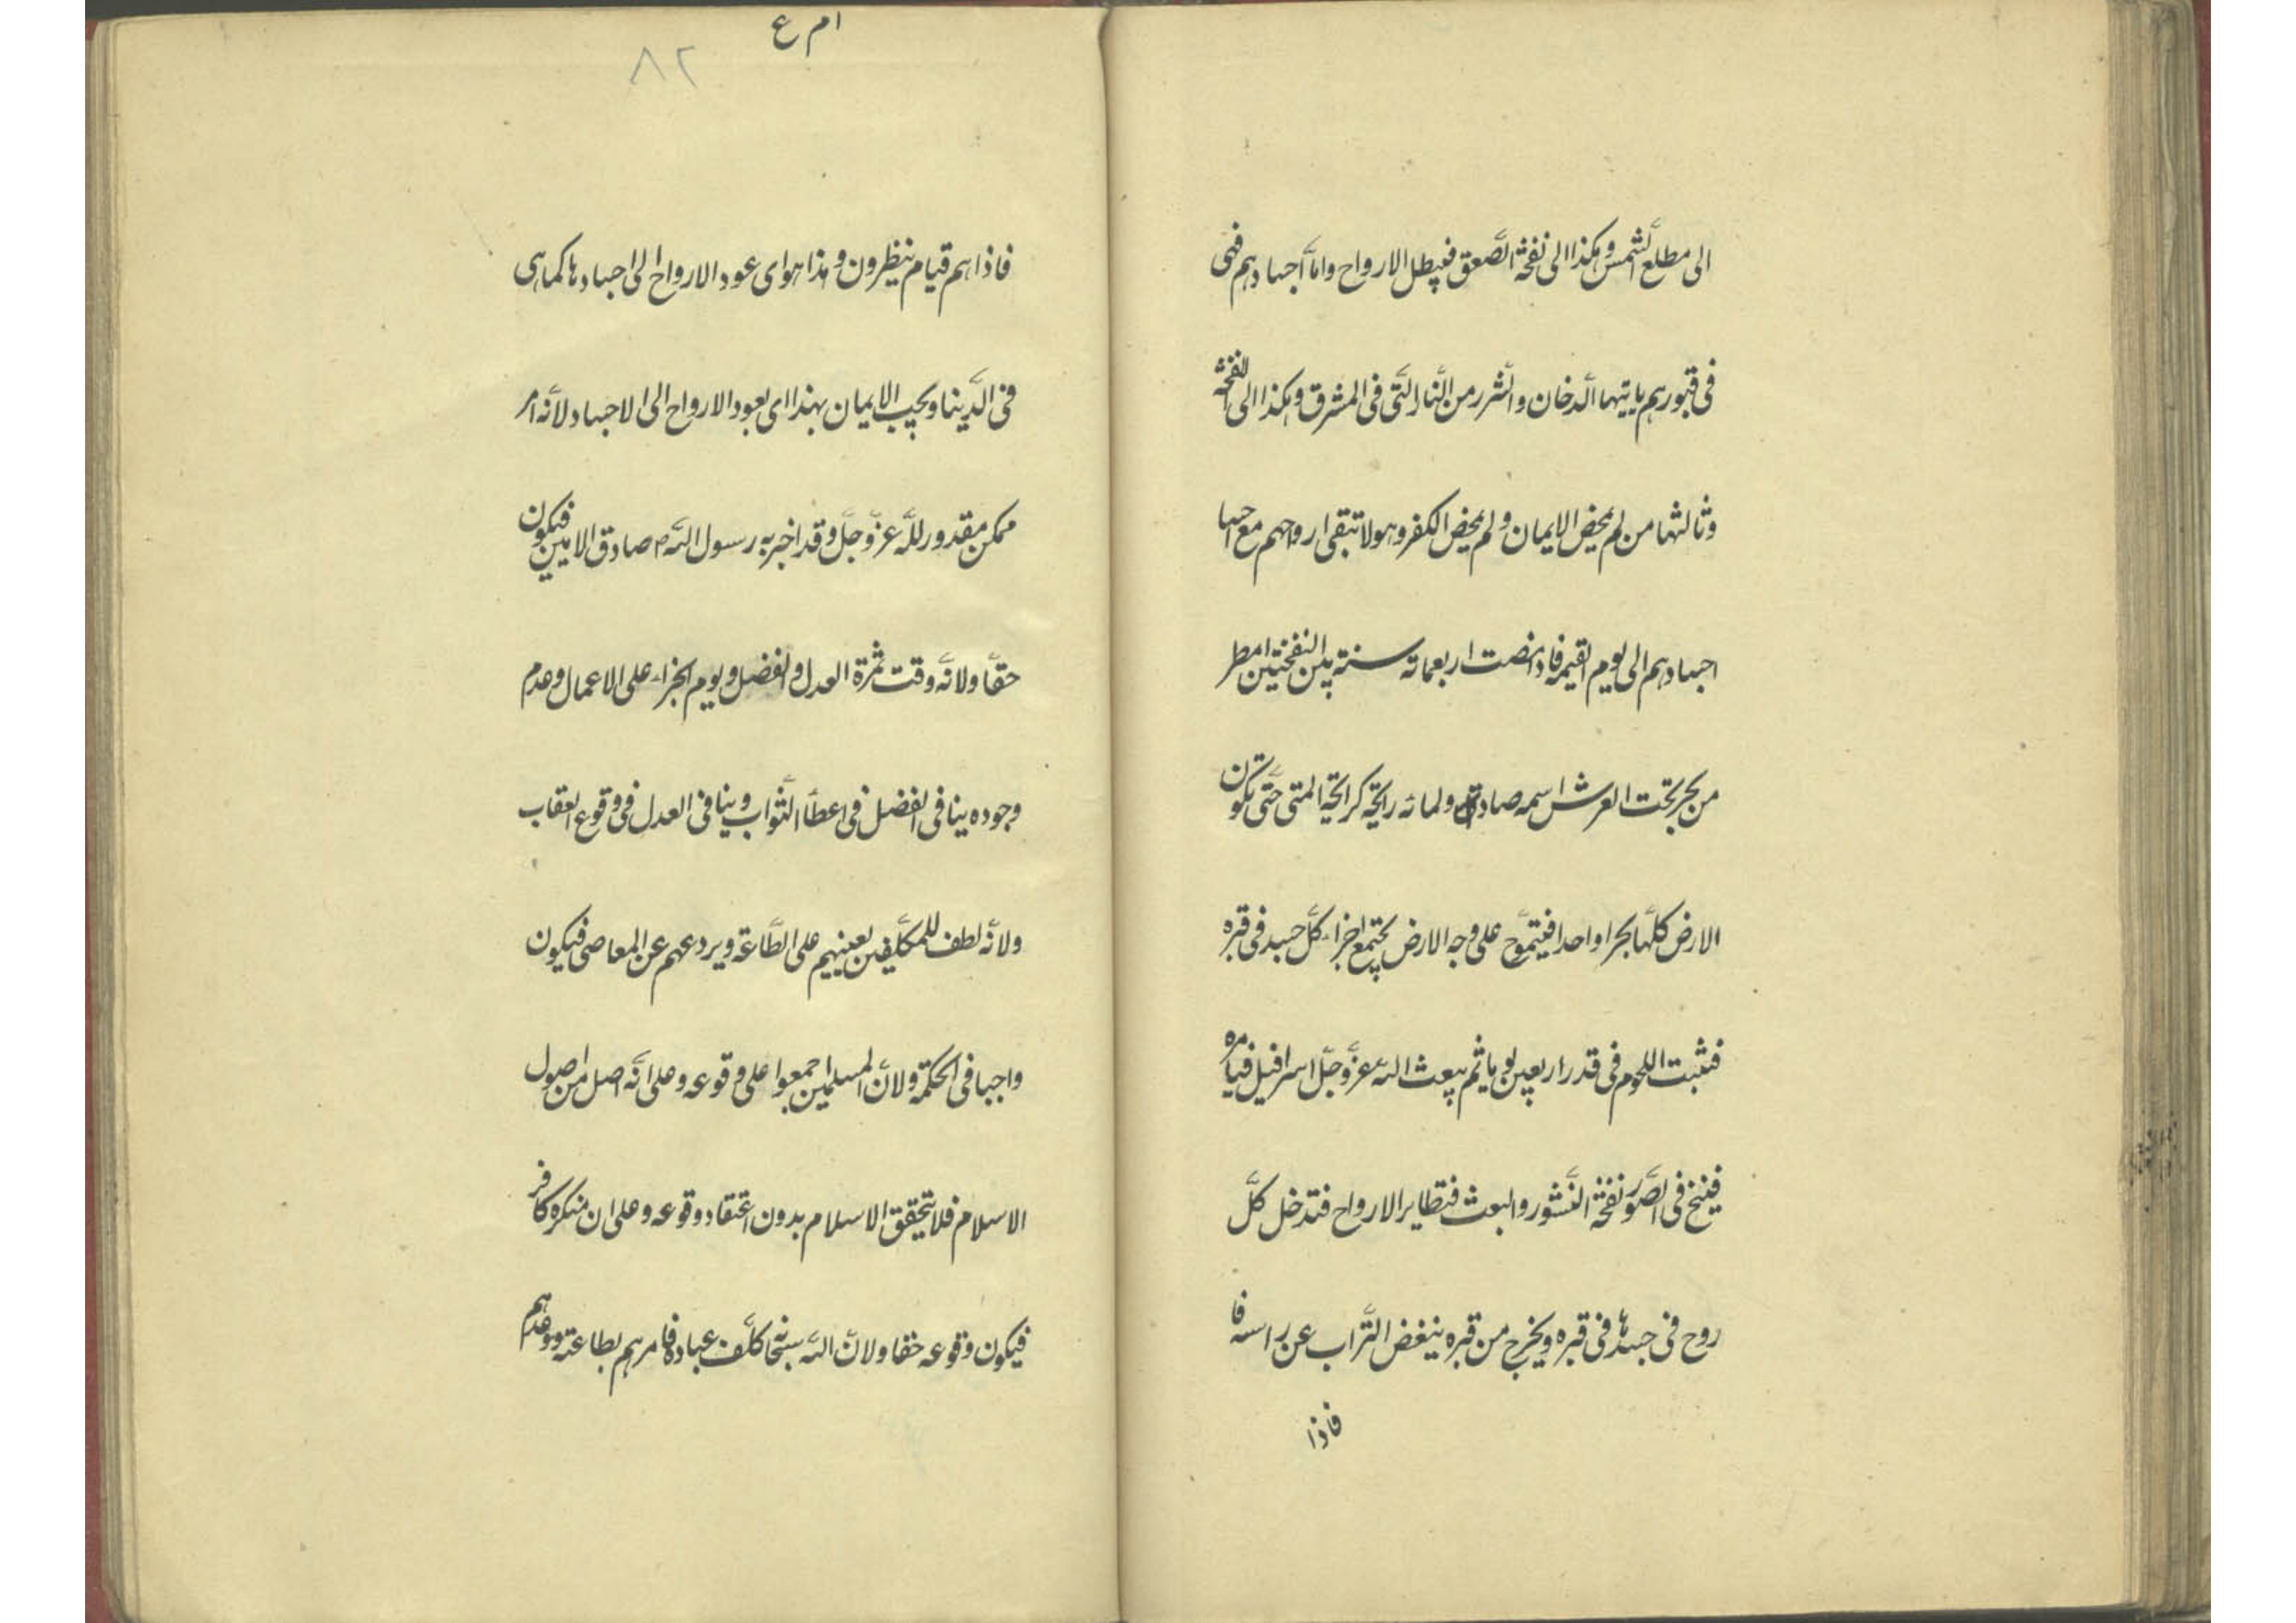 الى مطلع الشمس وهكذا الى نفخة الصّعق فيبطل الارواح وامّا اجسادهم فهى
فى قبورهم ياتيها الدّخان والشّرر من النّار الّتى فى المشرق وهكذا الى نفخة
وثالثها من لم يمحض الايمان ولم يمحض الكفر وهولا تبقى ارواحهم مع
اجسادهم الى يوم القيمة فاذا مضت اربعماة سنة بين النفختين امطر
من بحر تحت العرش اسمه صاد ولمائه رايحة كرايحة المنى حتّى تكون
الارض كلّها بحرا واحدا فيتموّج على وجه الارض يجتمع اجزاء كلّ جسد فى قبره
فتنبت اللحوم فى قدر اربعين يوما ثم يبعث الله عزّوجلّ اسرافيل فيامره
فينفخ فى الصّور نفخة النّشور والبعث فتطاير الارواح فتدخل كلّ
روح فى جسدها فى قبره ويخرج من قبره ينفض التّراب عن راسه فا
فاذا
ام ع
٨٢
فاذا هم قيام ينظرون وهذا هو اى عود الارواح الى اجسادها كما هى
فى الدّنيا ويجب الايمان بهذا اى بعود الارواح الى الاجساد لانّه امر
ممكن مقدور للّه عزّوجلّ وقد اخبر به رسول الله ص صادق الامين فيكون
حقّا ولانّه وقت ثمرة العدل والفضل ويوم الجزاء على الاعمال وعدم
وجوده ينافى الفضل فى اعطاء الثّواب وينافى العدل فى وقوع العقاب
ولانّه لطف للمكلّفين يعينهم على الطّاعة ويردعهم عن المعاصى فيكون
واجبا فى الحكمة ولانّ المسلمين اجمعوا على وقوعه وعلى انّه اصل من اصول
الاسلام فلا يتحقق الاسلام بدون اعتقاد وقوعه وعلى ان منكره كافر
فيكون وقوعه حقا ولانّ الله سبحانه كلّف عباده فامرهم بطاعته ووعدهم